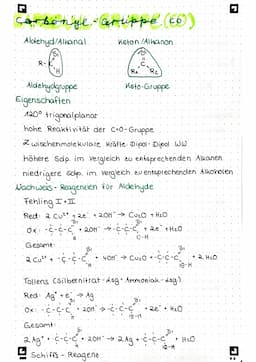 Carbonyl-Gruppe (CO)
Aldehyd/Alkanal Keton/Alkanon
R-C O H
O C R₁ R₂
Aldehydgruppe Keto-Gruppe
Eigenschaften
120° trigonalplanar
hohe Reaktivität der C=O-Gruppe
Zwischenmolekulare Kräfte: Dipol-Dipol WW
höhere Sdp. im Vergleich zu entsprechenden Alkanen
niedrigere Sdp. im Vergleich zu entsprechenden Alkoholen
Nachweis-Reagenzien für Aldehyde
Fehling I + II
Red: 2 Cu²⁺ + 2e⁻ + 2OH⁻ → Cu₂O + H₂O
Ox: -C-C-C O H + 2OH⁻ → -C-C-C O O-H + 2e⁻ + H₂O
Gesamt:
2 Cu²⁺ + -C-C-C O H + 4OH⁻ → Cu₂O + -C-C-C O O-H + 2 H₂O
Tollens (Silbernitrat-Lsg + Ammoniak-Lsg)
Red: Ag⁺ + e⁻ → Ag
Ox: -C-C-C O H + 2OH⁻ → -C-C-C O O-H + 2e⁻ + H₂O
Gesamt:
2 Ag⁺ + -C-C-C O H + 2OH⁻ → 2 Ag + -C-C-C O O-H + H₂O
Schiffs-Reagenz